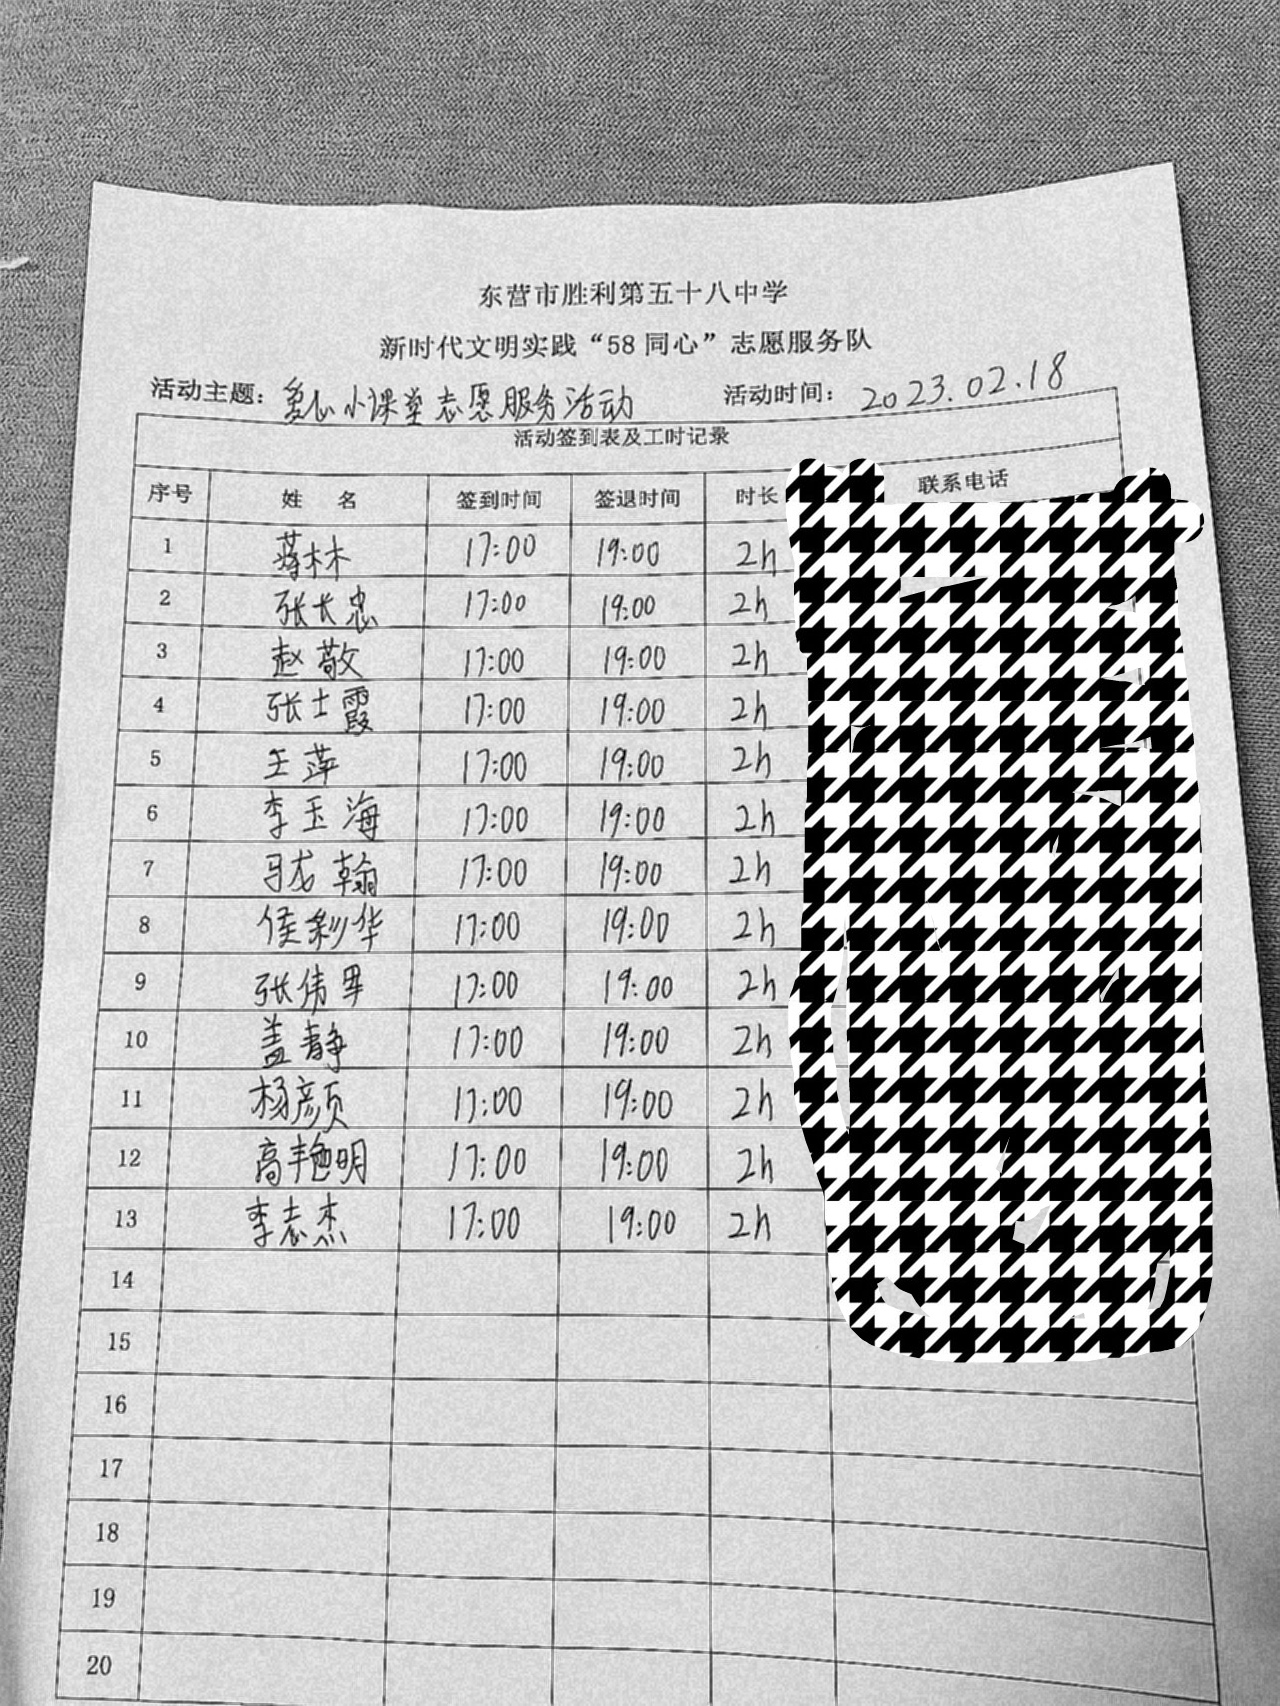 东营市胜利第五十八中学
新时代文明实践“58同心”志愿服务队
活动主题：小课堂志愿服务活动 活动时间：2023.02.18
活动签到表及工时记录
序号 姓名 签到时间 签退时间 时长 联系电话
1 蒋林林 17:00 19:00 2h
2 张长忠 17:00 19:00 2h
3 赵敬 17:00 19:00 2h
4 张士霞 17:00 19:00 2h
5 王萍 17:00 19:00 2h
6 李玉海 17:00 19:00 2h
7 翰 17:00 19:00 2h
8 侯华 17:00 19:00 2h
9 张伟 17:00 19:00 2h
10 盖静 17:00 19:00 2h
11 杨颜 17:00 19:00 2h
12 高艳明 17:00 19:00 2h
13 李志杰 17:00 19:00 2h
14
15
16
17
18
19
20